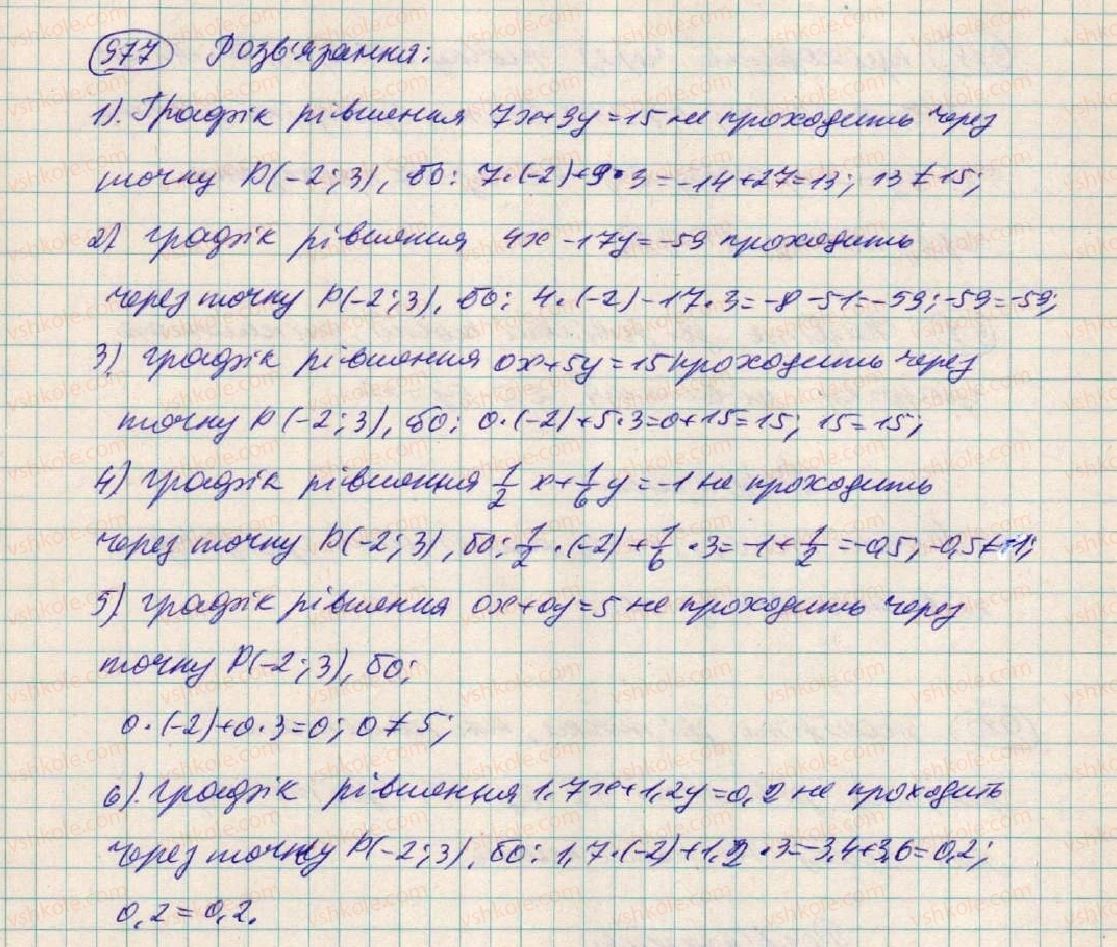 977 Розв'язання:
1). Графік рівняння 7x+9y=15 не проходить через
точку P(-2;3), бо: 7·(-2)+9·3=-14+27=13; 13≠15;
2) графік рівняння 4x-17y=-59 проходить
через точку P(-2;3), бо: 4·(-2)-17·3=-8-51=-59; -59=-59;
3) графік рівняння 0x+5y=15 проходить через
точку P(-2;3), бо: 0·(-2)+5·3=0+15=15; 15=15;
4) графік рівняння 1/2 x+1/6 y=-1 не проходить
через точку P(-2;3), бо: 1/2·(-2)+1/6·3=-1+1/2=-0,5; -0,5≠-1;
5) графік рівняння 0x+0y=5 не проходить через
точку P(-2;3), бо:
0·(-2)+0·3=0; 0≠5;
6). графік рівняння 1,7x+1,2y=0,2 не проходить
через точку P(-2;3), бо: 1,7·(-2)+1,2·3=-3,4+3,6=0,2;
0,2=0,2.